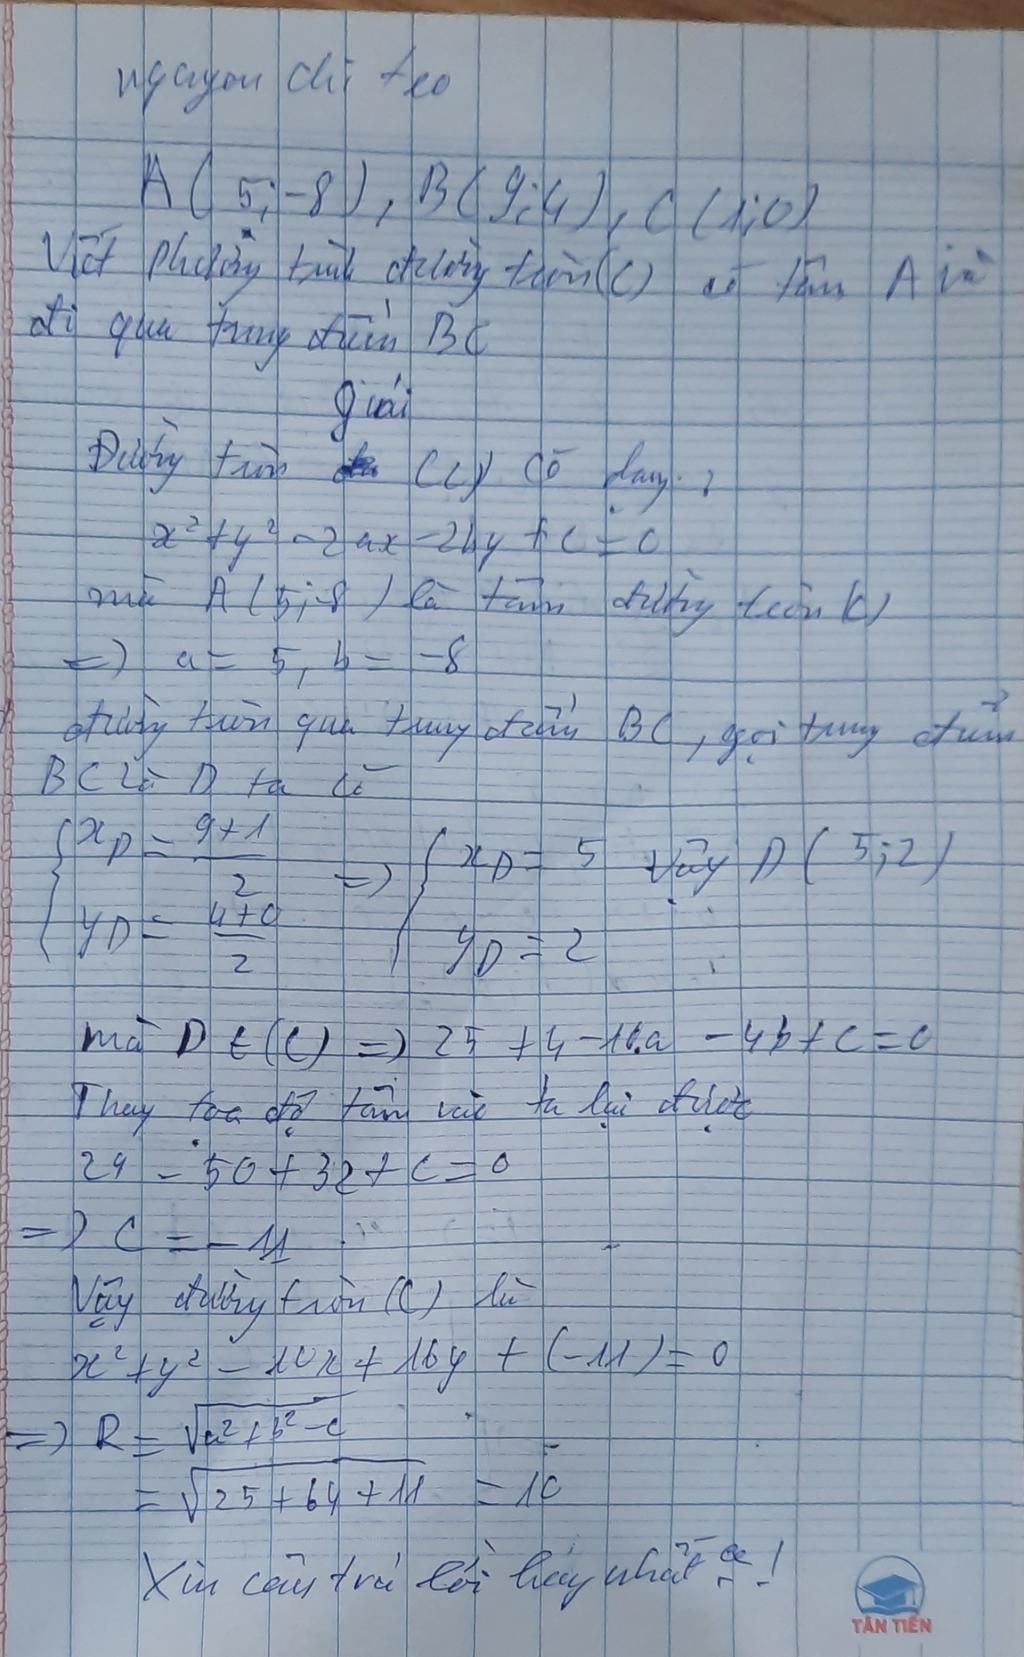 nguyen chi teo
A(5;-8), B(9;4), C(1;0)
Viết phường trình đường tròn(C) có tâm A và
đi qua trung điểm BC
giải
Đường tròn (C) có dạng:
x²+y²-2ax-2by+c=0
mà A(5;-8) là tâm đường tròn (C)
=) a= 5, b= -8
đường tròn qua trung điểm BC, gọi trung điểm
BC là D ta có
{ x_D = (9+1)/2 =) { x_D = 5 Vậy D(5;2)
y_D = (4+0)/2 y_D = 2
mà D ∈ (C) =) 25 +4 -10.a -4b+c=0
Thay tọa độ tâm vào ta lại được
29 - 50+32+c=0
=) C = -11
Vậy đường tròn (C) là
x²+y² - 10x+16y + (-11)=0
=) R = √(a²+b²-c)
= √(25+64+11) = 10
Xin câu trả lời hay nhất ạ!
TÂN TIẾN